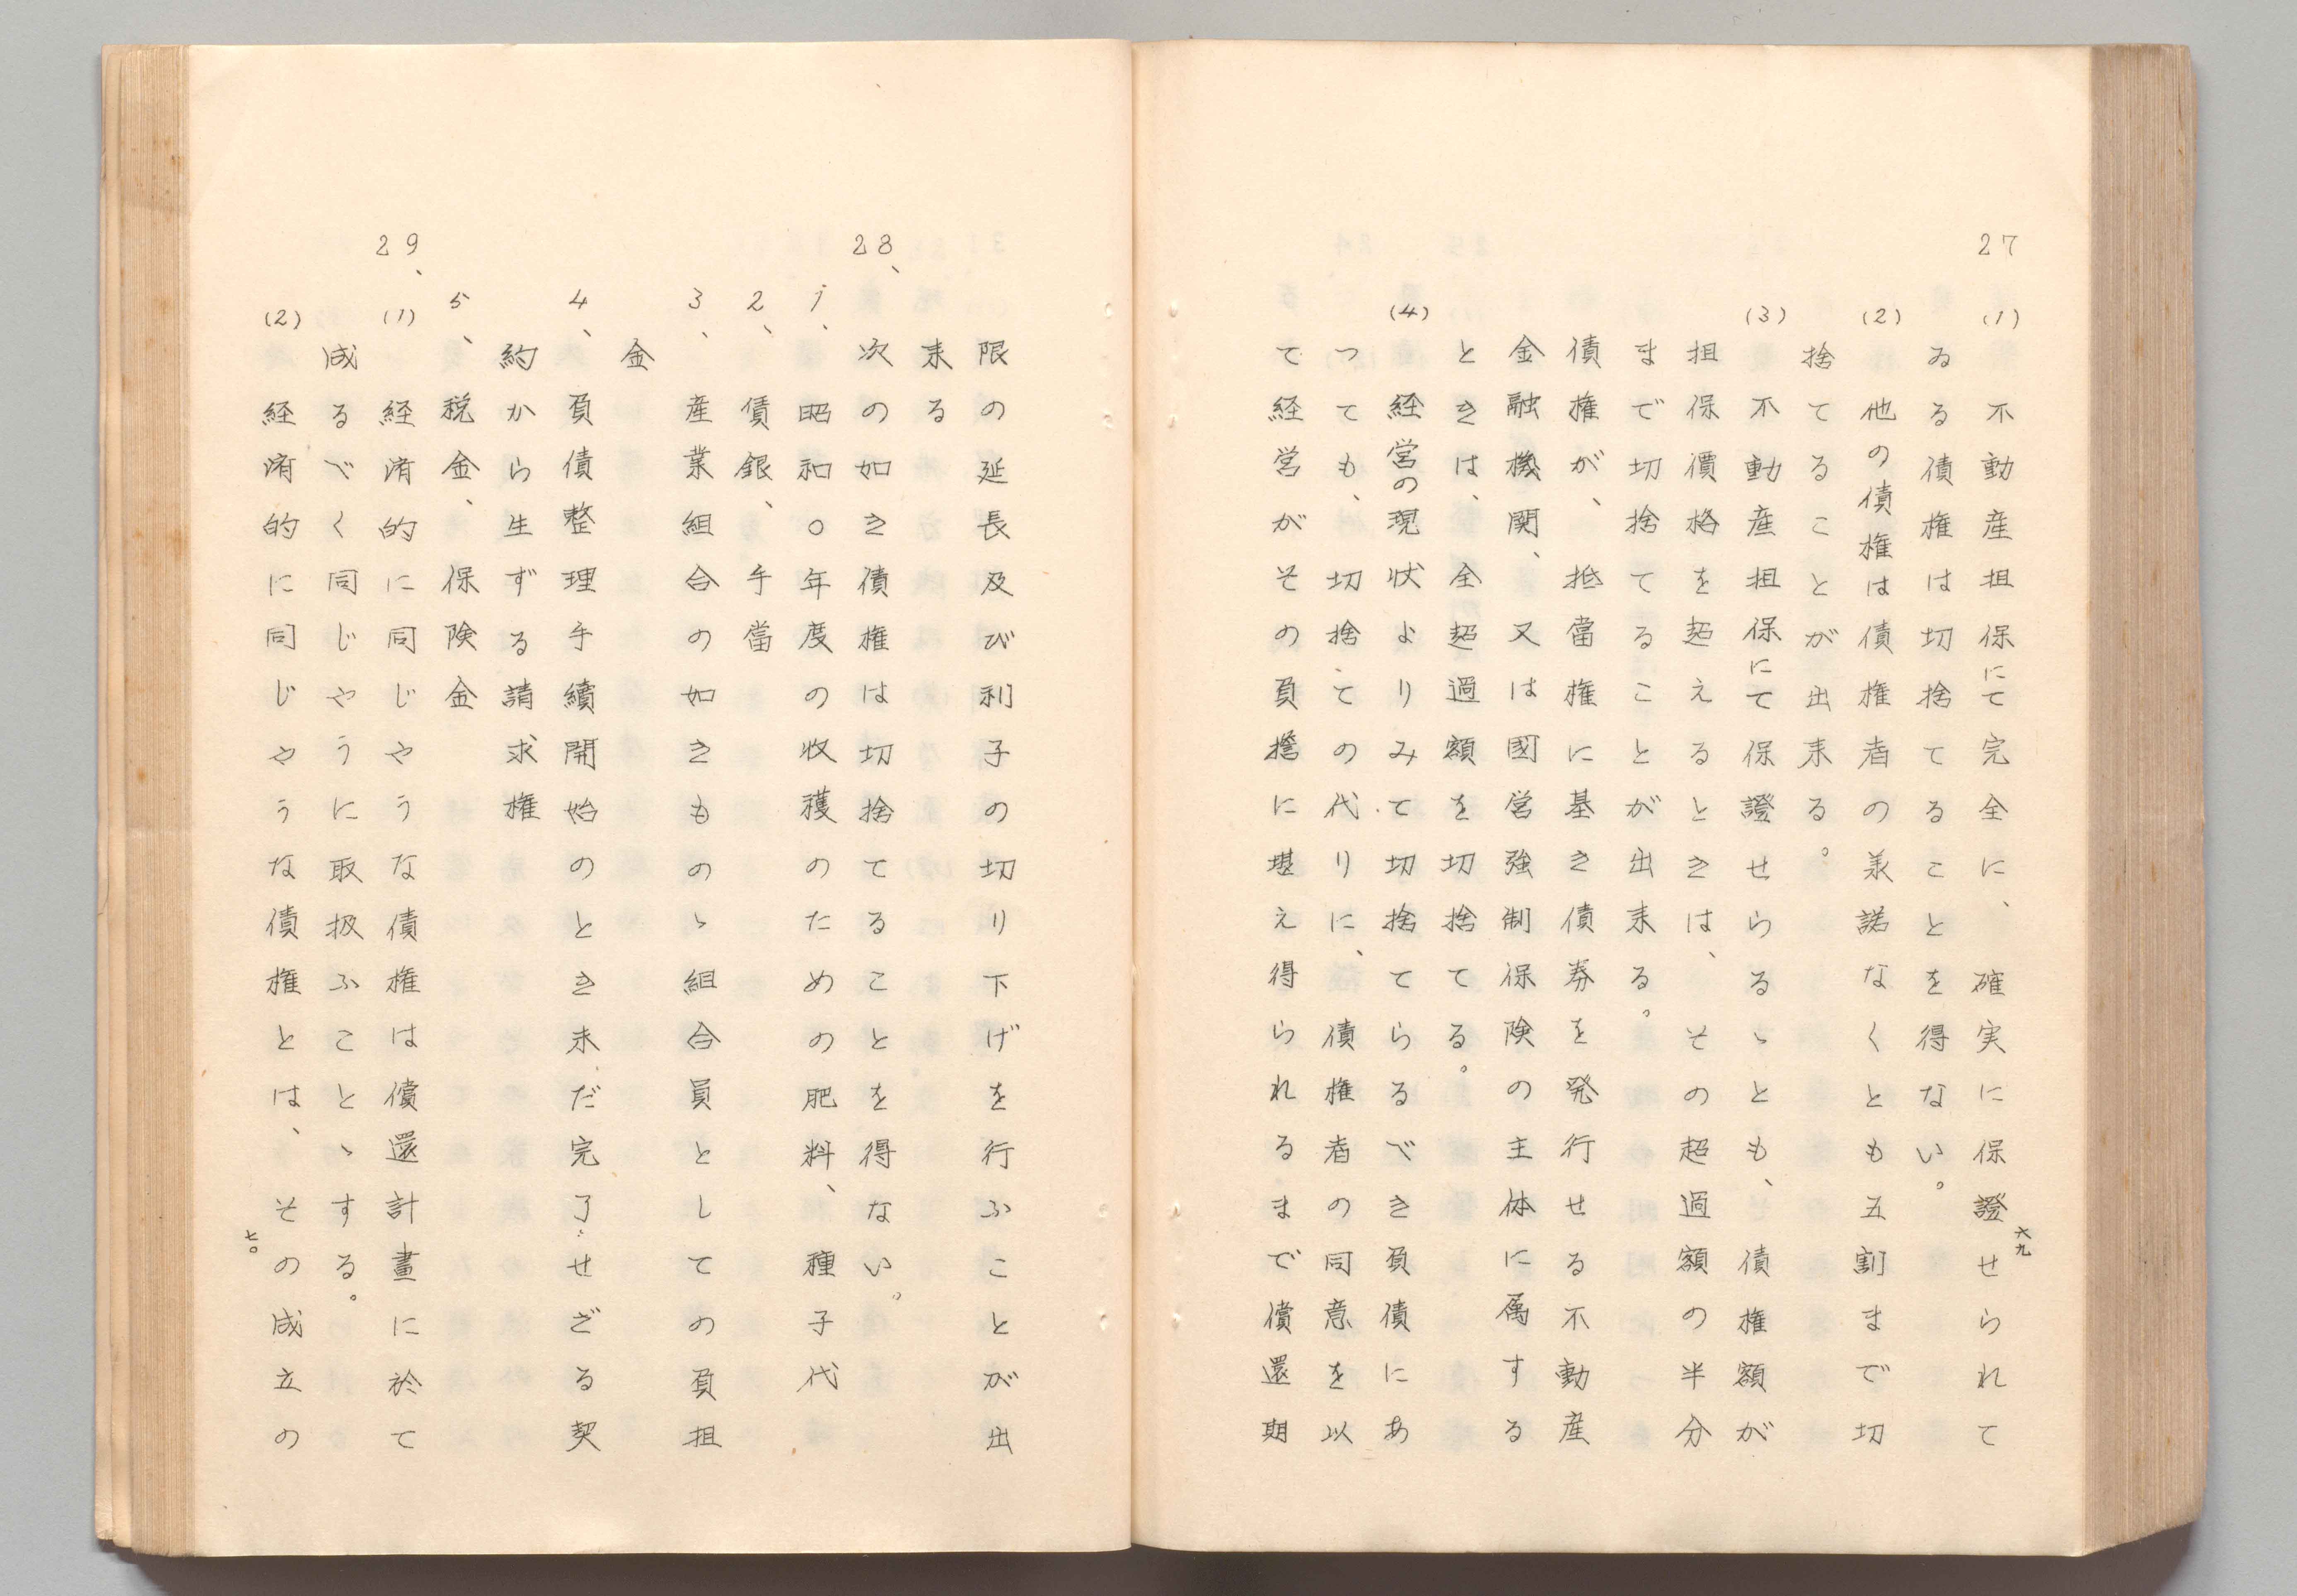 27
(1) 不動産担保にて完全に、確実に保證せられて
ゐる債権は切捨てることを得ない。
(2) 他の債権は債権者の羕諾なくとも五割まで切
捨てることが出来る。
(3) 不動産担保にて保證せらるゝとも、債権額が
担保價格を超えるときは、その超過額の半分
まで切捨てることが出来る。
債権が、抵當権に基き債券を発行せる不動産
金融機関、又は國営強制保険の主体に属する
ときは、全超過額を切捨てる。
(4) 経営の現状よりみて切捨てらるべき負債にあ
つても、切捨ての代りに、債権者の同意を以
て経営がその負擔に堪え得られるまで償還期
六九
限の延長及び利子の切り下げを行ふことが出
来る
28、次の如き債権は切捨てることを得ない。
1、昭和〇年度の收穫のための肥料、種子代
2、債銀、手當
3、産業組合の如きものゝ組合員としての負担
金
4、負債整理手續開始のとき未だ完了せざる契
約から生ずる請求権
5、税金、保険金
29、
(1) 経済的に同じやうな債権は償還計畫に於て
成るべく同じやうに取扱ふことゝする。
(2) 経済的に同じやうな債権とは、その成立の
七〇